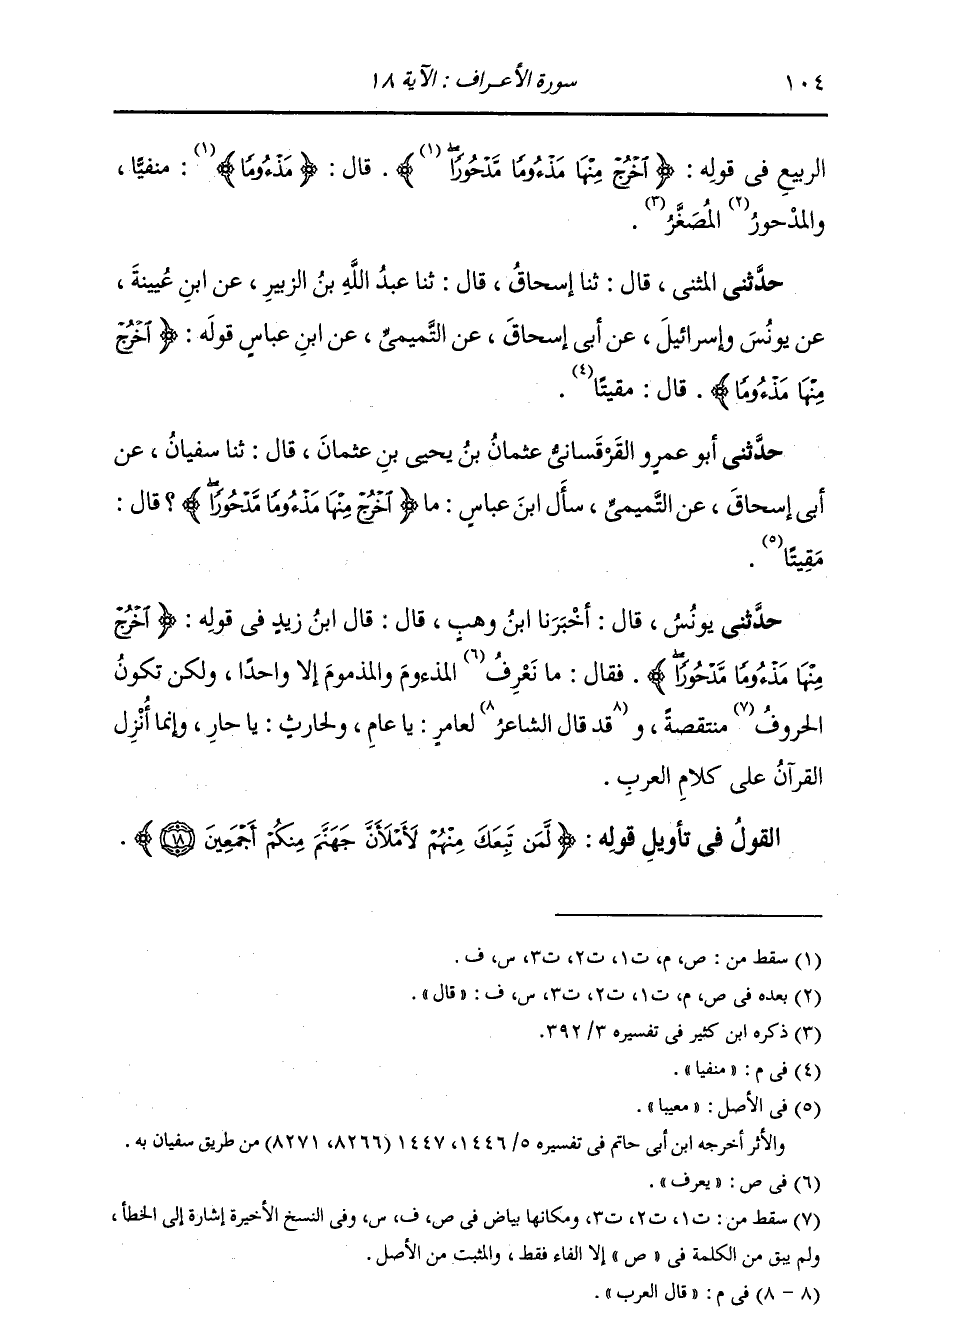 ١٠٤ سورة الأعراف : الآية ١٨
الربيعِ فى قولِه : ﴿ ٱخْرُجْ مِنْهَا مَذْءُومًا مَّدْحُورًاۖ (١) ﴾ . قال : ﴿ مَذْءُومًا ﴾ (١) : منفيًّا ،
والمدْحورُ (٢) المُصَغَّرُ (٣) .
حدَّثنى المثنى ، قال : ثنا إسحاقُ ، قال : ثنا عبدُ اللَّهِ بنُ الزبيرِ ، عن ابنِ عُيينةَ ،
عن يونُسَ وإسرائيلَ ، عن أبى إسحاقَ ، عن التَّميمىِّ ، عن ابنِ عباسٍ قولَه : ﴿ ٱخْرُجْ
مِنْهَا مَذْءُومًا ﴾ . قال : مقيتًا (٤) .
حدَّثنى أبو عمرٍو القَرْقَسانىُّ عثمانُ بنُ يحيى بنِ عثمانَ ، قال : ثنا سفيانُ ، عن
أبى إسحاقَ ، عن التَّميمىِّ ، سأَل ابنَ عباسٍ : ما ﴿ ٱخْرُجْ مِنْهَا مَذْءُومًا مَّدْحُورًاۖ ﴾ ؟ قال :
مَقِيتًا (٥) .
حدَّثنى يونُسُ ، قال : أخْبَرَنا ابنُ وهبٍ ، قال : قال ابنُ زيدٍ فى قولِه : ﴿ ٱخْرُجْ
مِنْهَا مَذْءُومًا مَّدْحُورًاۖ ﴾ . فقال : ما نَعْرِفُ (٦) المذءومَ والمذمومَ إلا واحدًا ، ولكن تكونُ
الحروفُ (٧) منتقصةً ، و (٨ قد قال الشاعرُ ٨) لعامرٍ : يا عامِ ، ولحارثٍ : يا حارِ ، وإنما أُنْزِل
القرآنُ على كلامِ العربِ .
القولُ فى تأويلِ قولِه : ﴿ لَّمَن تَبِعَكَ مِنْهُمْ لَأَمْلَأَنَّ جَهَنَّمَ مِنكُمْ أَجْمَعِينَ ١٨ ﴾ .
(١) سقط من : ص، م، ت١، ت٢، ت٣، س، ف .
(٢) بعده فى ص، م، ت١، ت٢، ت٣، س، ف : « قال » .
(٣) ذكره ابن كثير فى تفسيره ٣/ ٣٩٢.
(٤) فى م : « منفيا » .
(٥) فى الأصل : « معيبا » .
والأثر أخرجه ابن أبى حاتم فى تفسيره ٥/ ١٤٤٦، ١٤٤٧ (٨٢٦٦، ٨٢٧١) من طريق سفيان به .
(٦) فى ص : « يعرف » .
(٧) سقط من : ت١، ت٢، ت٣، ومكانها بياض فى ص، ف، س، وفى النسخ الأخيرة إشارة إلى الخطأ ،
ولم يبق من الكلمة فى « ص » إلا الفاء فقط ، والمثبت من الأصل .
(٨ - ٨) فى م : « قال العرب » .